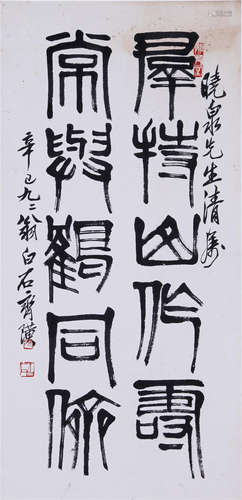 曉泉先生清屬
羣持山作壽
常與鶴同
辛巳九二翁白石齊璜